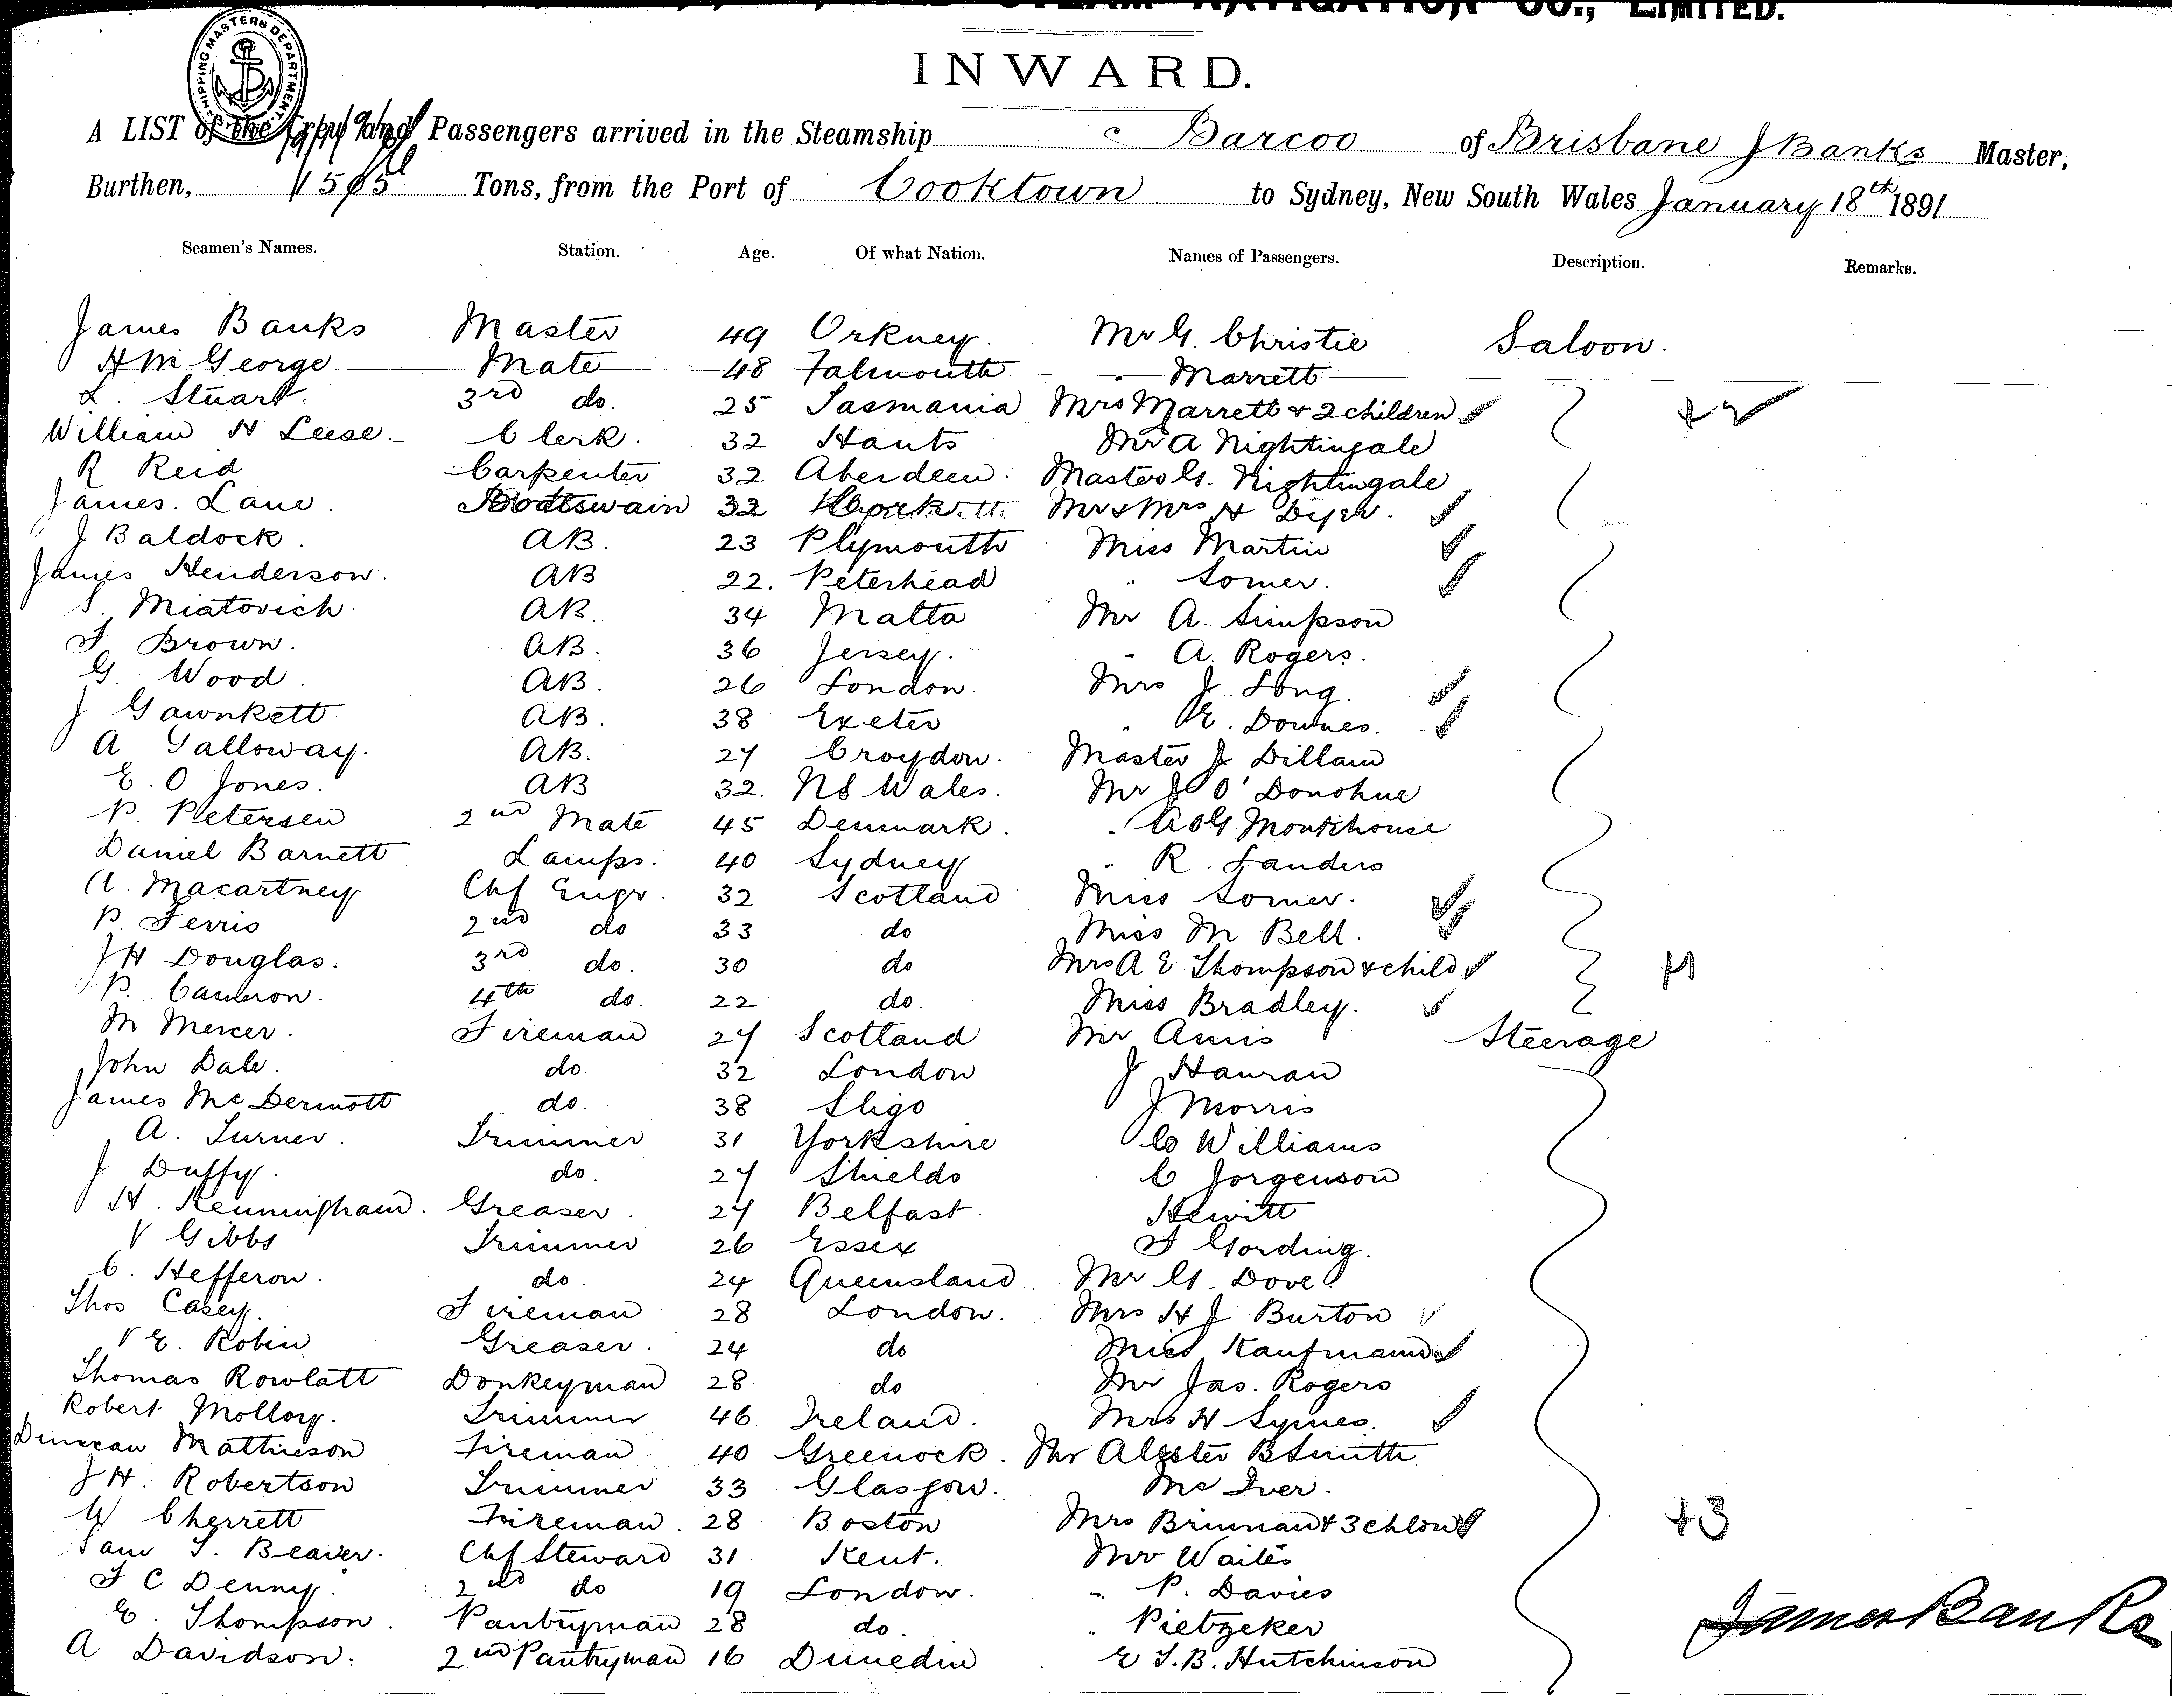 STEAM NAVIGATION CO., LIMITED.
SHIPPING MASTERS DEPARTMENT
INWARD.
A LIST of the Crew and Passengers arrived in the Steamship Barcoo of Brisbane J Banks Master,
Burthen, 1505 Tons, from the Port of Cooktown to Sydney, New South Wales January 18th 1891
Seamen's Names. Station. Age. Of what Nation. Names of Passengers. Description. Remarks.
James Banks Master 49 Orkney. Mr G. Christie Saloon.
H M George Mate 48 Falmouth " Marrett
L. Stuart 3rd do. 25 Tasmania Mrs Marrett & 2 children +2
William H Leese Clerk. 32 Hants Mr A Nightingale
R Reid Carpenter 32 Aberdeen. Master G. Nightingale
James. Lane Boatswain 32 Mr & Mrs H Dyer.
J Baldock. AB. 23 Plymouth Miss Martin
James Henderson. AB 22. Peterhead " Somer.
S. Miatovich AB. 34 Malta Mr A. Simpson
F Brown. AB. 36 Jersey. " A. Rogers.
G. Wood. AB. 26 London. Mrs J. Long.
J Gawnkett AB. 38 Exeter " E. Downes.
A Galloway. AB. 27 Croydon. Master J Dillam
E. O Jones. AB 32. NS Wales. Mr J O'Donohue
P. Petersen 2nd Mate 45 Denmark. " Monkhouse
Daniel Barnett Lamps. 40 Sydney " R. Sanders
A. Macartney Chf Engr. 32 Scotland Miss Somer.
P. Ferris 2nd do 33 do Miss M Bell.
J H Douglas. 3rd do. 30 do Mrs A E Thompson & child +1
P. Cameron. 4th do. 22 do. Miss Bradley.
M Mercer. Fireman 27 Scotland Mr Amis Steerage
John Dale. do. 32 London J Hanran
James McDermott do. 38 Sligo J Morris
A. Turner. Trimmer 31 Yorkshire C Williams
J Duffy. do. 27 Shields C Jorgenson
H. Kenningham. Greaser. 27 Belfast. Hewitt
V Gibbs Trimmer 26 Essex F Gording.
C. Hefferon. do. 24 Queensland Mr G. Dove
Thos Casey. Fireman 28 London. Mrs H J Burton
V E. Robin Greaser. 24 do Miss Kaufmann
Thomas Rowlatt Donkeyman 28 do Mr Jas. Rogers
Robert Molloy. Trimmer 46 Ireland. Mrs H Symes.
Duncan Mathieson Fireman 40 Greenock. Mr B Smith
J H. Robertson Trimmer 33 Glasgow. Mc Iver.
W Cherrett Fireman. 28 Boston Mrs Brinnan & 3 chldn +3
Sam T. Beaver. Chf Steward 31 Kent. Mr Waites
F C Denny. 2nd do 19 London. " P. Davies
E. Thompson. Pantryman 28 do. " Pietzeker
A Davidson. 2nd Pantryman 16 Dunedin E T. B. Hutchinson
James Banks